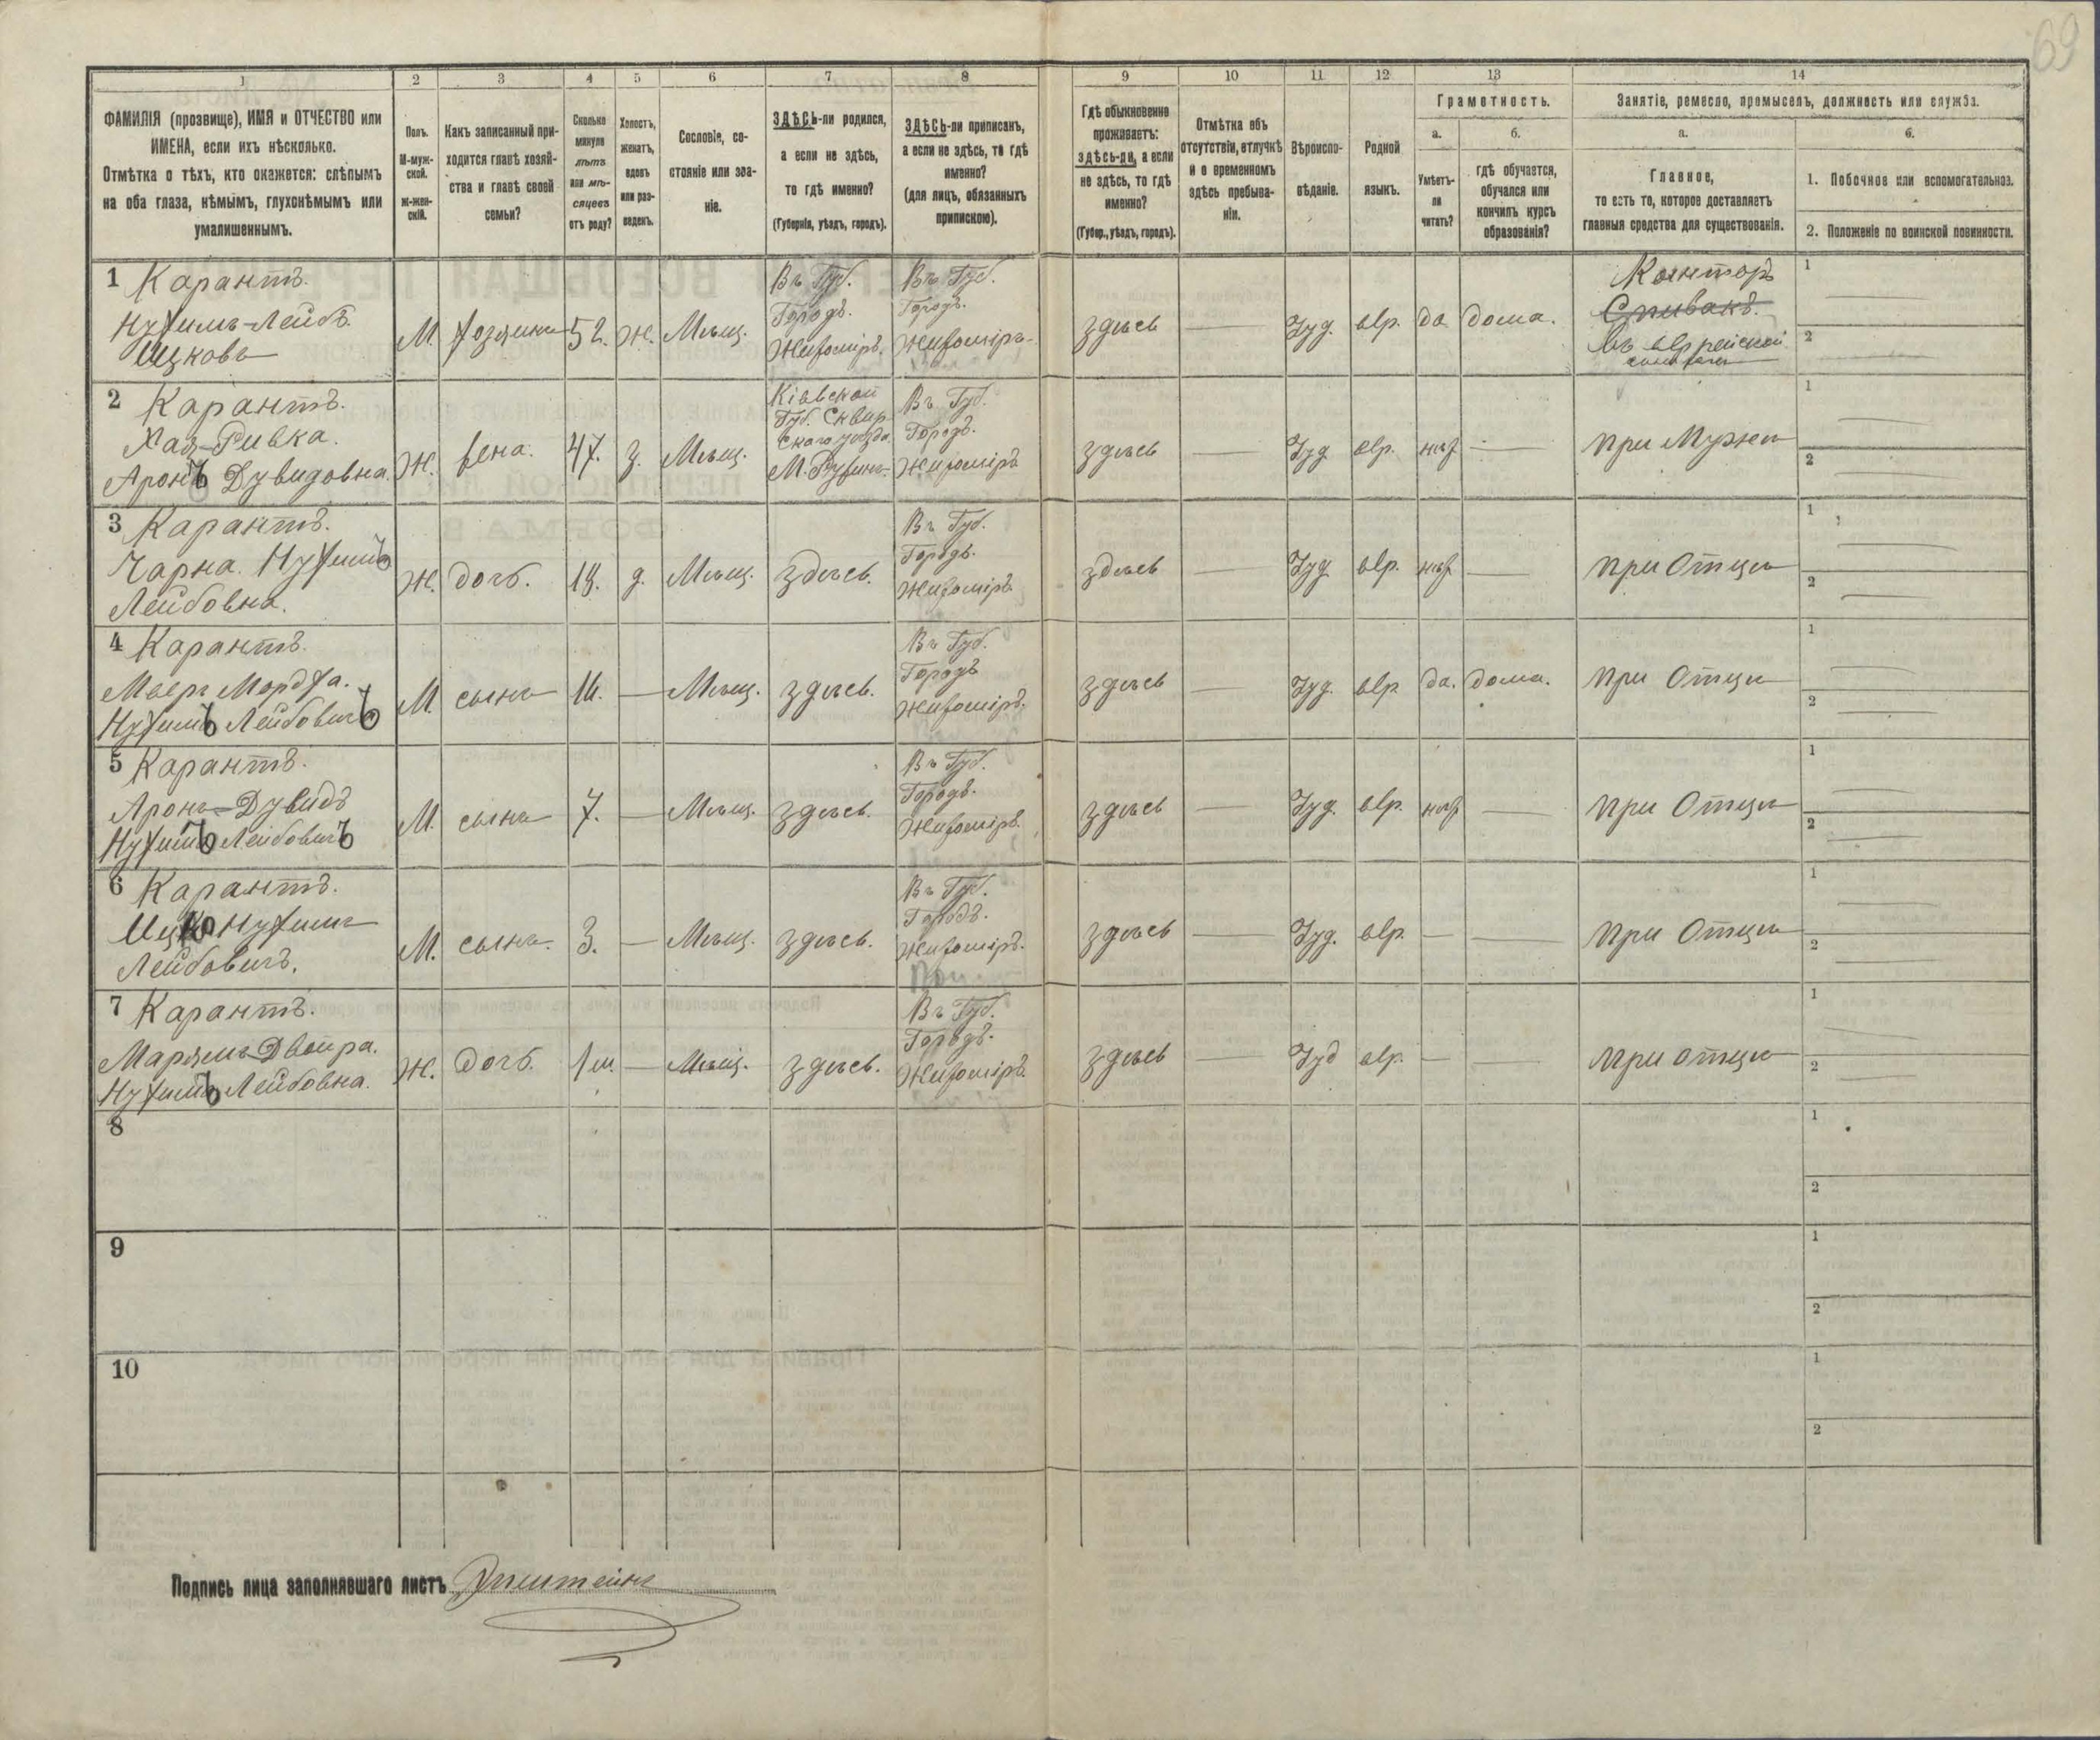 69
1 2 3 4 5 6 7 8 9 10 11 12 13 14
ФАМИЛІЯ (прозвище), ИМЯ и ОТЧЕСТВО или
ИМЕНА, если ихъ нѣсколько.
Отмѣтка о тѣхъ, кто окажется: слѣпымъ
на оба глаза, нѣмымъ, глухонѣмымъ или
умалишеннымъ.
Полъ.
М-муж-
ской.
Ж-жен-
скій.
Какъ записанный при-
ходится главѣ хозяй-
ства и главѣ своей
семьи?
Сколько
минуло
лѣтъ
или мѣ-
сяцевъ
отъ роду?
Холостъ,
женатъ,
вдовъ
или раз-
веденъ.
Сословіе, со-
стояніе или зва-
ніе.
ЗДѢСЬ-ли родился,
а если не здѣсь,
то гдѣ именно?
(Губернія, уѣздъ, городъ).
ЗДѢСЬ-ли приписанъ,
а если не здѣсь, то гдѣ
именно?
(для лицъ, обязанныхъ
припискою).
Гдѣ обыкновенно
проживаетъ:
здѣсь-ли, а если
не здѣсь, то гдѣ
именно?
(Губер., уѣздъ, городъ).
Отмѣтка объ
отсутствіи, отлучкѣ
и о временномъ
здѣсь пребыва-
ніи.
Вѣроиспо-
вѣданіе.
Родной
языкъ.
Грамотность.
а.
Умѣетъ-
ли
читать?
б.
гдѣ обучается,
обучался или
кончилъ курсъ
образованія?
Занятіе, ремесло, промыселъ, должность или служба.
а.
Главное,
то есть то, которое доставляетъ
главныя средства для существованія.
б.
1. Побочное или вспомогательное.
2. Положеніе по воинской повинности.
1 Карантъ.
Нухимъ-Лейбъ.
Ицковъ
М. хозяинъ 52. Ж. Мѣщ.
Въ Губ.
Городѣ.
Житомірѣ.
Въ Губ.
Городѣ.
Житомірѣ
здѣсь — Іуд. евр. да дома.
Канторъ
Спивакъ.
въ еврейской
1
2
2 Карантъ.
Хая-Ривка.
Аронъ Дувидовна.
Ж. жена. 47. З. Мѣщ.
Кіевской
Губ. Сквир
скаго уѣзда
М. Ружинъ.
Въ Губ.
Городѣ.
Житомірѣ
здѣсь — Іуд евр. нѣт — при Мужѣ
1
2
3 Карантъ.
Чарна. Нухимъ
Лейбовна.
Ж. дочь. 18. д. Мѣщ. здѣсь.
Въ Губ.
Городѣ.
Житомірѣ
здѣсь — Іуд. евр. нѣт — при Отцѣ
1
2
4 Карантъ.
Меер Мордха.
Нухимъ Лейбовичъ
М. сынъ 16. — Мѣщ. здѣсь.
Въ Губ.
Городѣ
Житомірѣ.
здѣсь — Іуд. евр. да. дома. при Отцѣ
1
2
5 Карантъ.
Аронъ-Дувидъ
Нухимъ Лейбовичъ
М. сынъ 7. — Мѣщ. здѣсь.
Въ Губ.
Городѣ.
Житомірѣ.
здѣсь — Іуд. евр. нѣт — при Отцѣ
1
2
6 Карантъ.
Ицко Нухимъ
Лейбовичъ.
М. сынъ. 3. — Мѣщ. здѣсь.
Въ Губ.
Городѣ.
Житомірѣ.
здѣсь — Іуд. евр. — — при Отцѣ
1
2
7 Карантъ.
Марямъ-Двойра.
Нухимъ Лейбовна.
Ж. дочь. 1 м. — Мѣщ. здѣсь.
Въ Губ.
Городѣ.
Житомірѣ.
здѣсь — Іуд евр. — — при отцѣ
1
2
8
1
2
9
1
2
10
1
2
Подпись лица заполнявшаго листъ